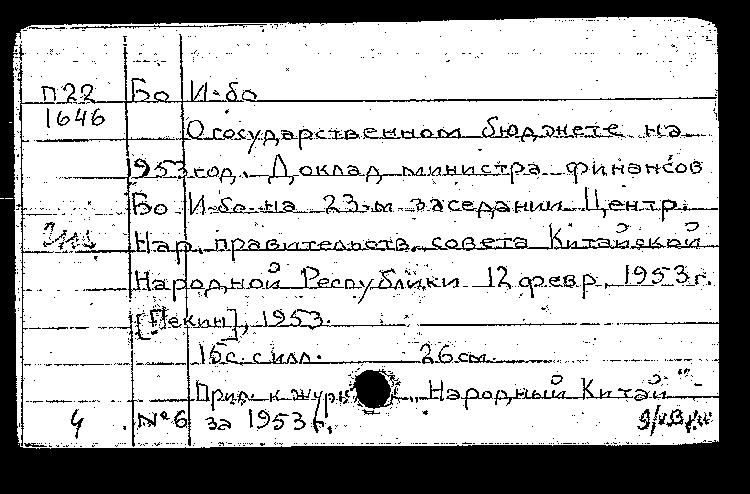 П22 Бо И-бо
1646
О государственном бюджете на
1953 год. Доклад министра финансов
Бо И-бо на 23-м заседании Центр.
Нар. правительств. совета Китайской
Народной Республики 12 февр. 1953 г.
[Пекин], 1953.
16 с. с илл. 26 см.
Прил. к журн. "Народный Китай" -
4 №6 за 1953 г.